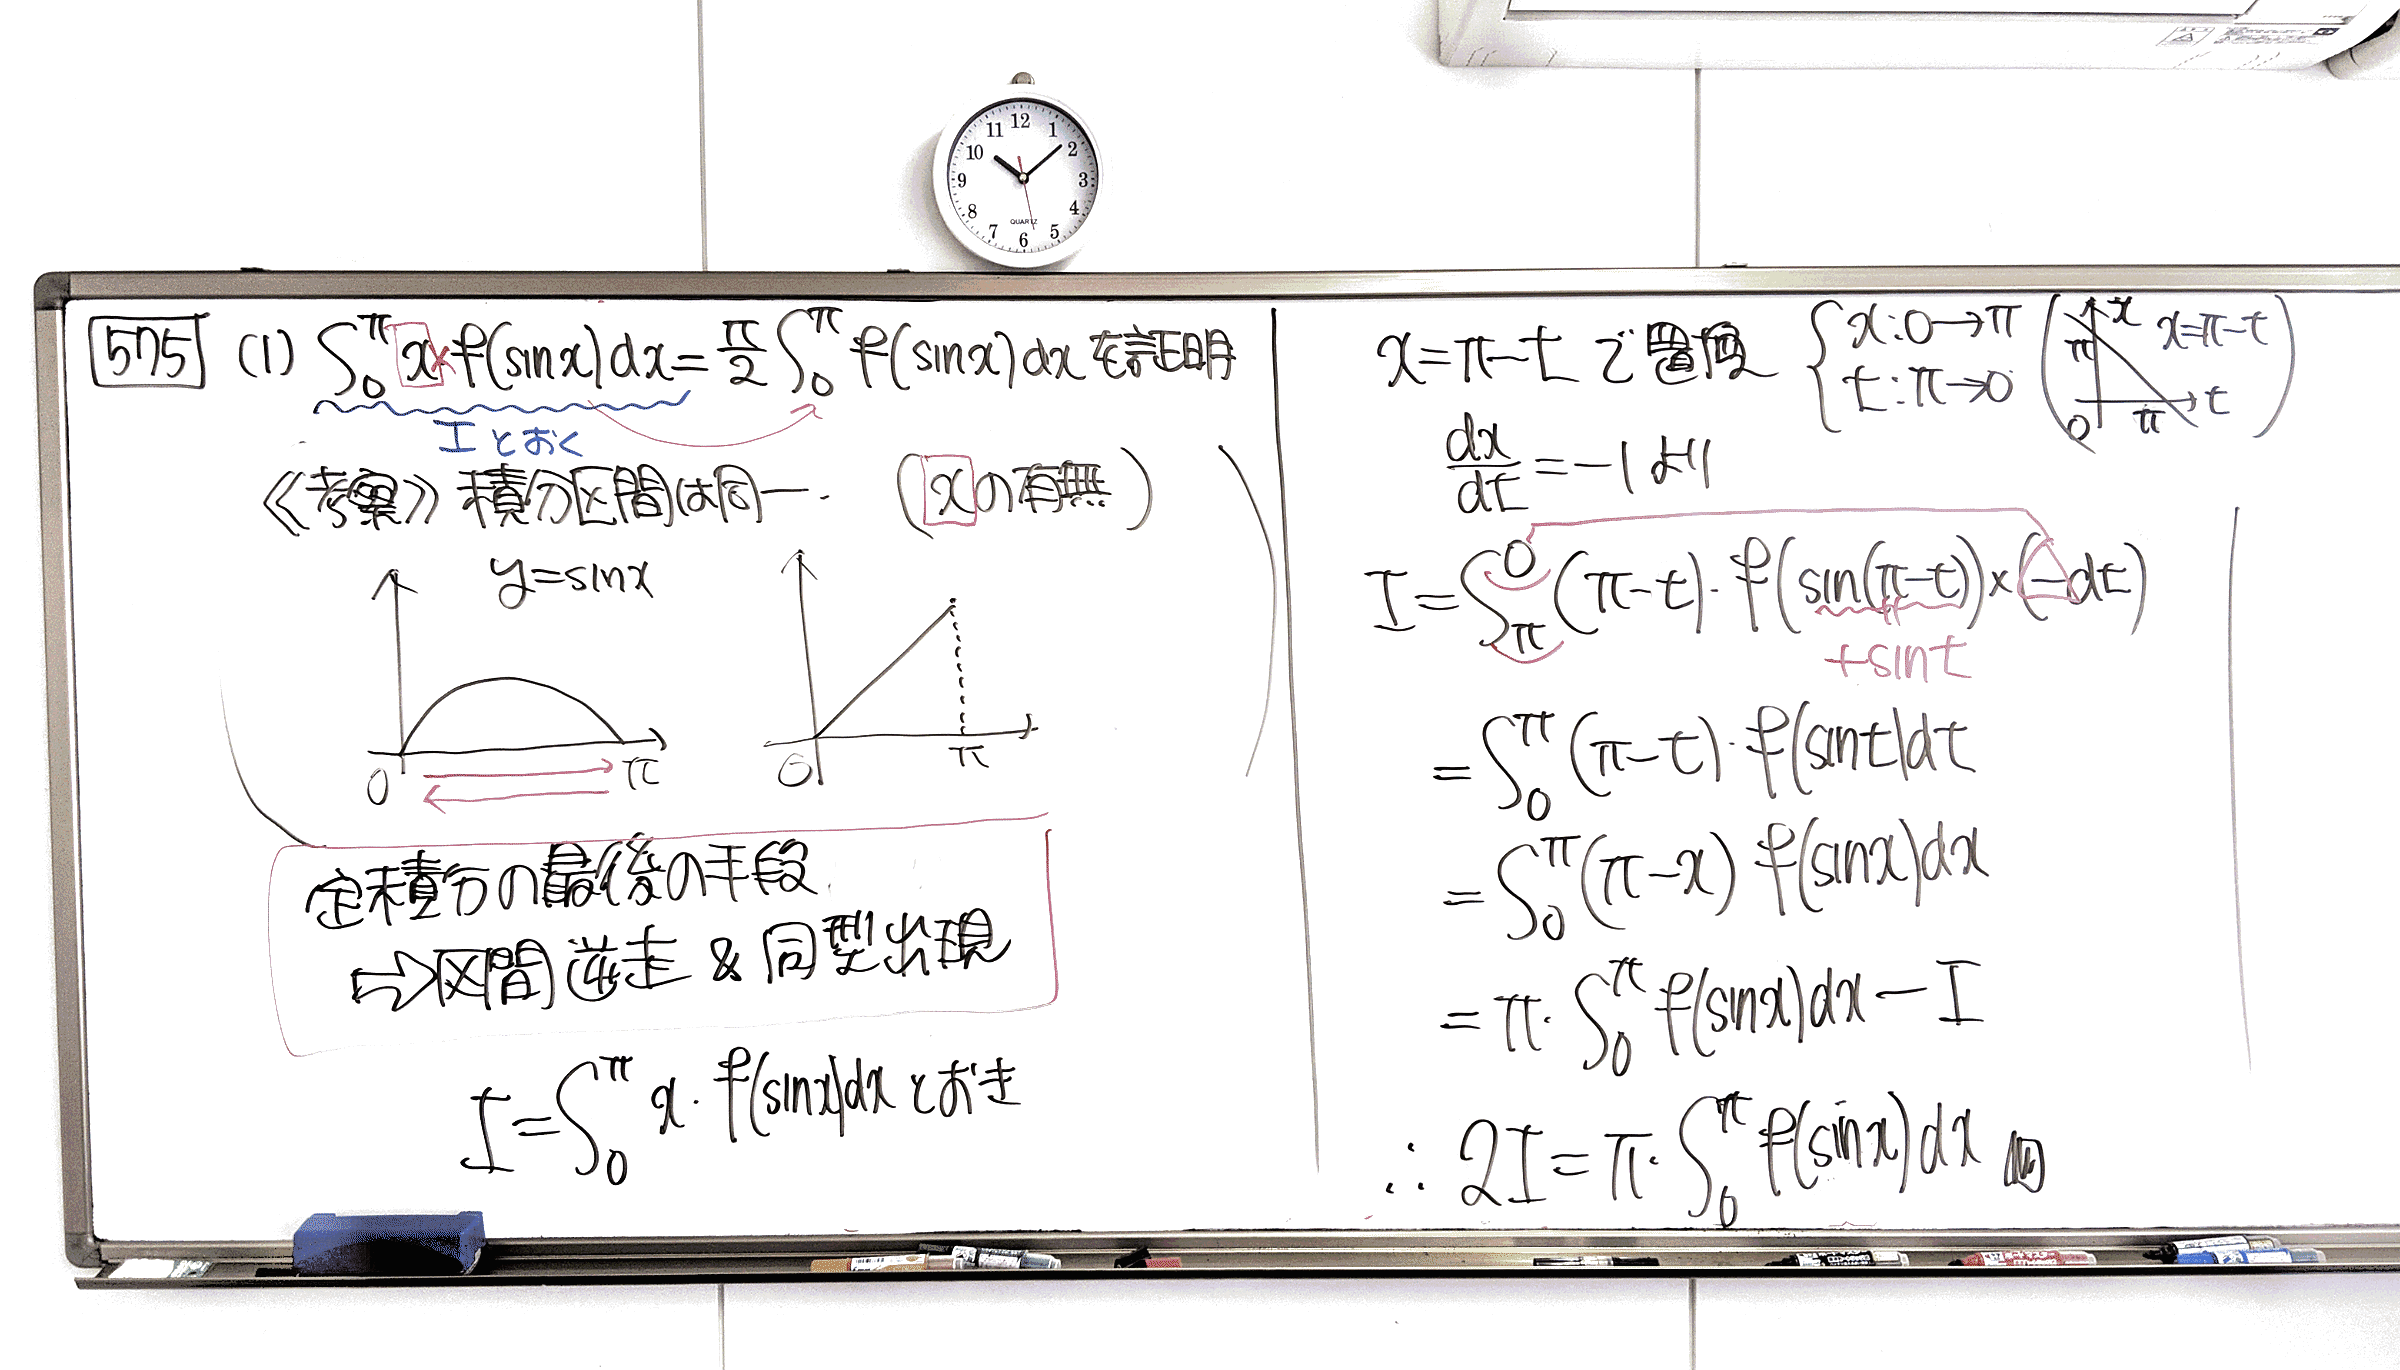 12
11 1
10 2
9 3
8 4
7 5
6
QUARTZ
575 (1) ∫₀^π x × f(sinx)dx = π/2 ∫₀^π f(sinx)dx を証明
Iとおく
《考察》積分区間は同一. (xの有無)
y=sinx
0 π
0 π
定積分の最後の手段
⇨区間逆走 & 同型出現
I=∫₀^π x・f(sinx)dx とおき
x=π-t で置換 { x:0→π
t:π→0 ( x π x=π-t
0 π t )
dx/dt = -1 より
I=∫_π^0 (π-t)・f(sin(π-t))×(-dt)
+sint
=∫₀^π (π-t)・f(sint)dt
=∫₀^π (π-x) f(sinx)dx
=π・∫₀^π f(sinx)dx - I
∴ 2I=π・∫₀^π f(sinx)dx